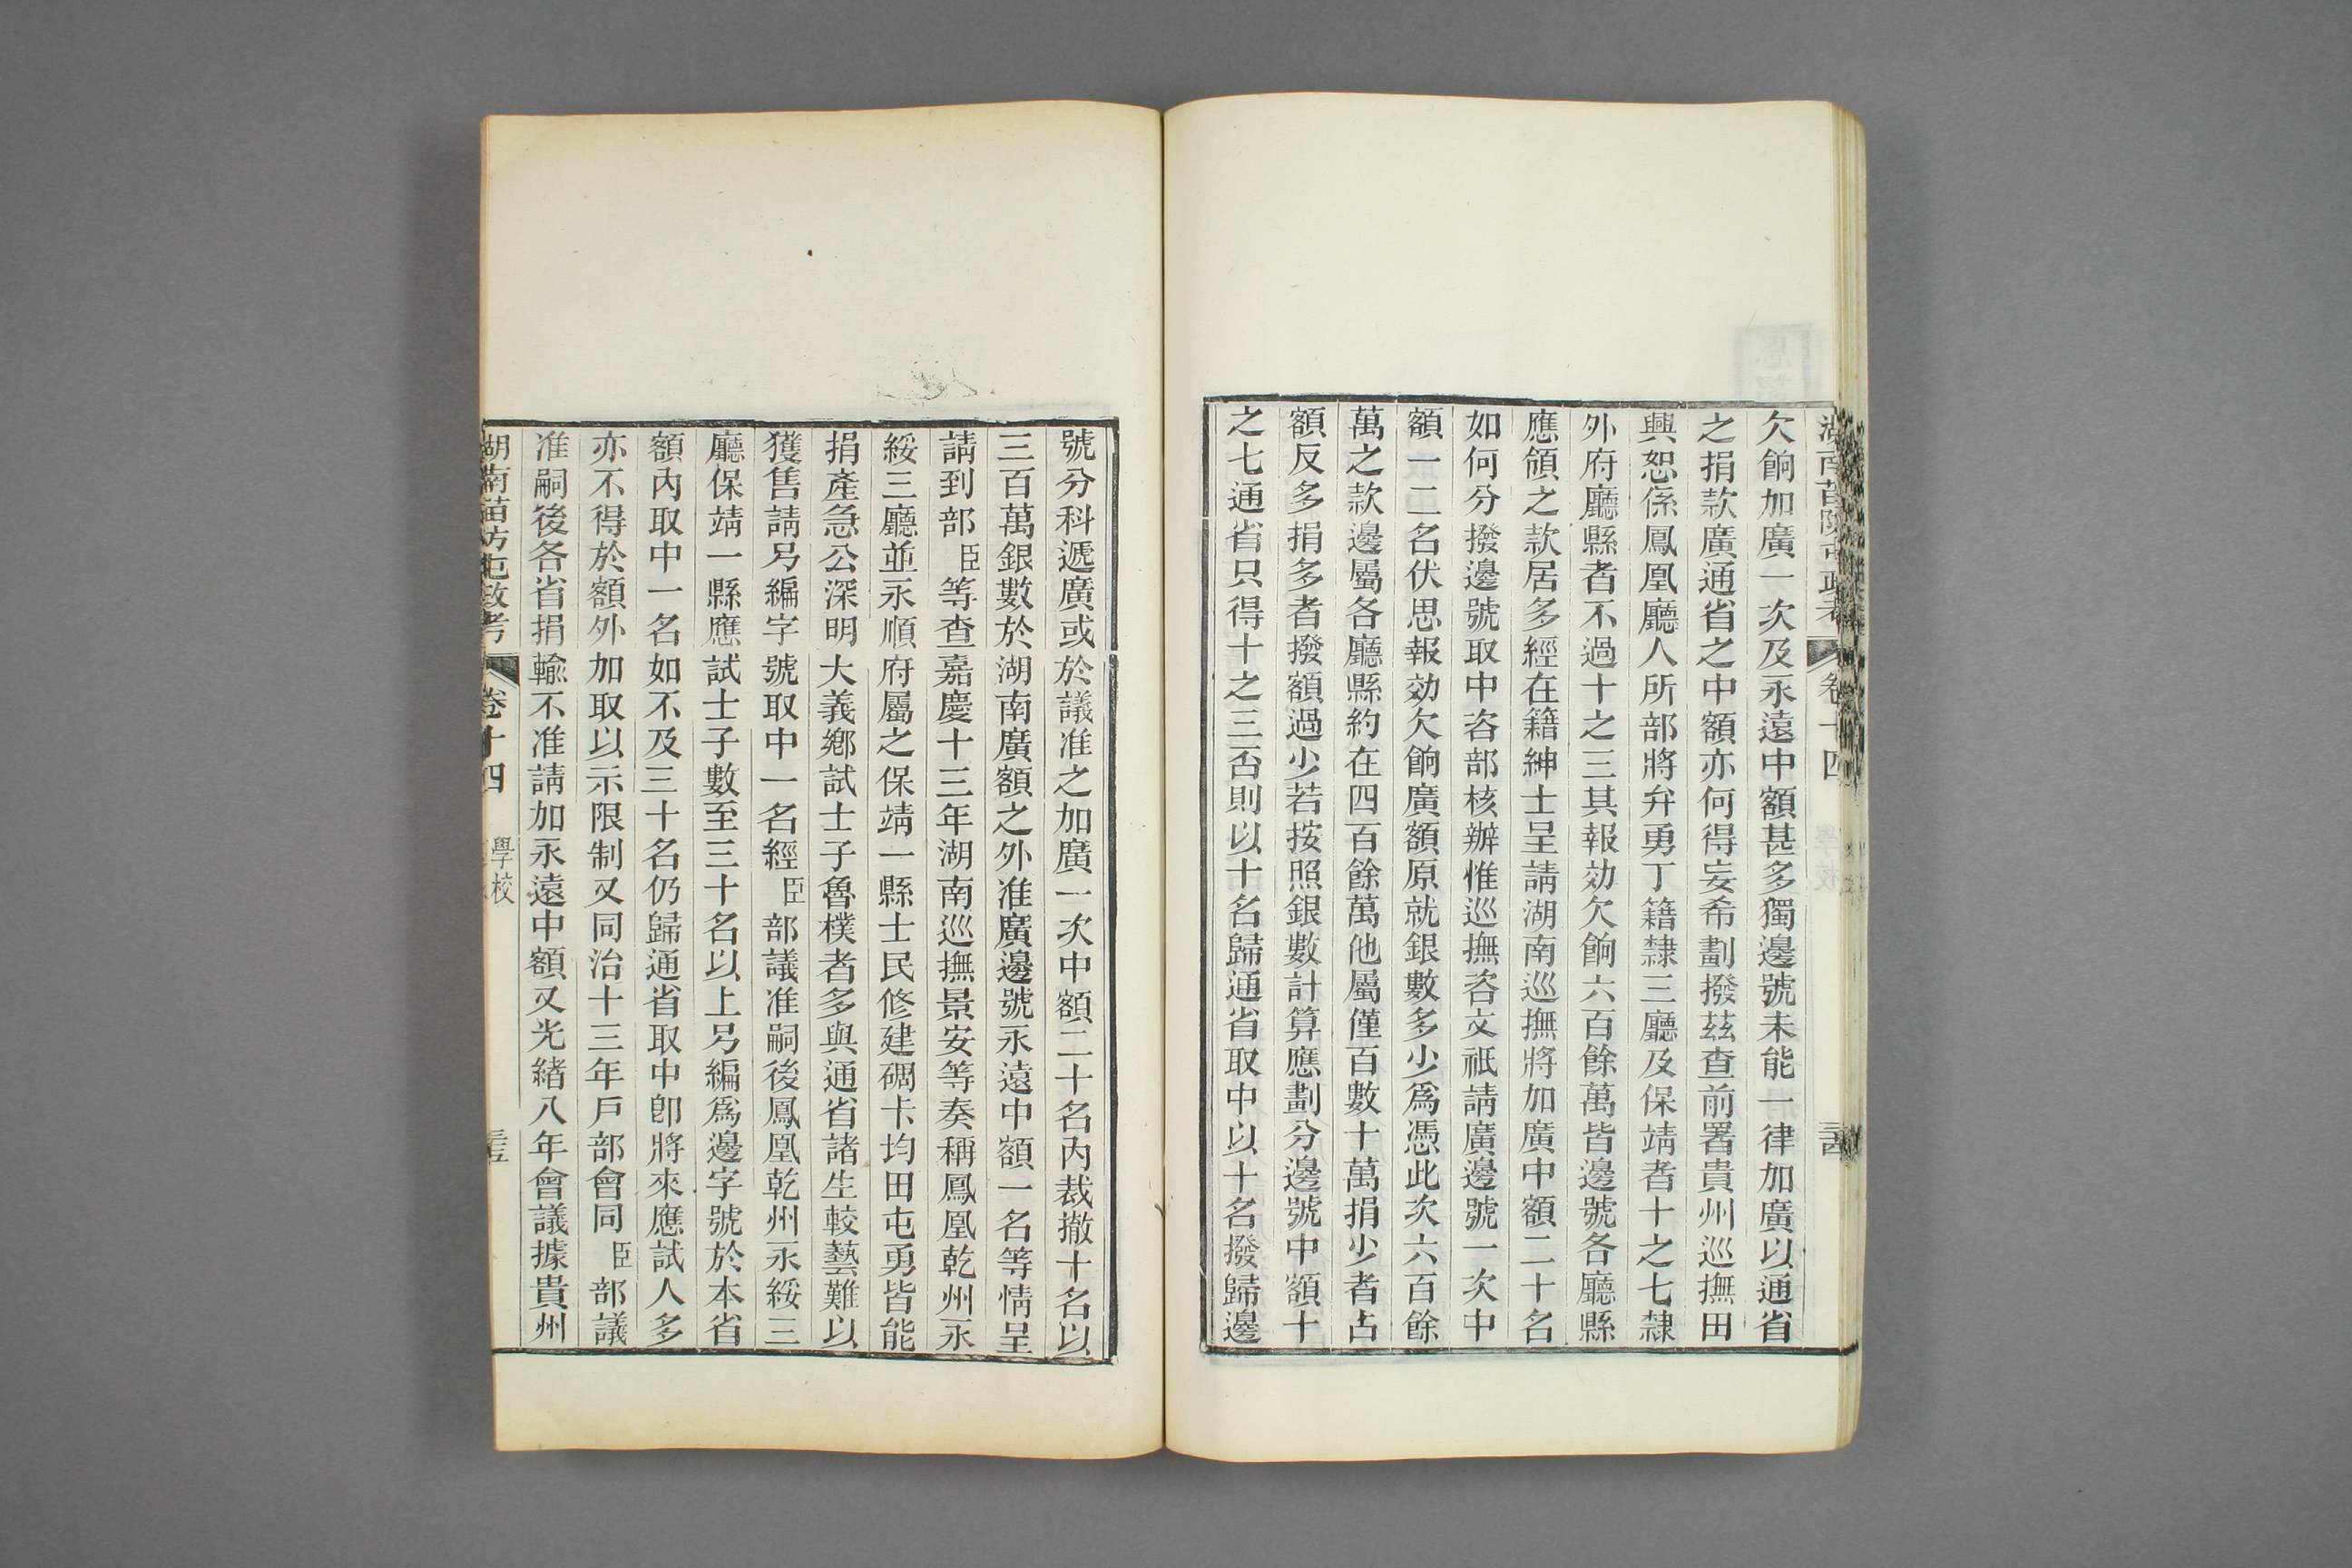 湖南苗防屯政考 卷十四 學校 三十四
欠餉加廣一次及永遠中額甚多獨邊號未能一律加廣以通省
之捐款廣通省之中額亦何得妄希劃撥茲查前署貴州巡撫田
興恕係鳳凰廳人所部將弁勇丁籍隸三廳及保靖者十之七隸
外府廳縣者不過十之三其報効欠餉六百餘萬皆邊號各廳縣
應領之款居多經在籍紳士呈請湖南巡撫將加廣中額二十名
如何分撥邊號取中咨部核辦惟巡撫咨文祇請廣邊號一次中
額一二名伏思報効欠餉廣額原就銀數多少為憑此次六百餘
萬之款邊屬各廳縣約在四百餘萬他屬僅百數十萬捐少者占
額反多捐多者撥額過少若按照銀數計算應劃分邊號中額十
之七通省只得十之三否則以十名歸通省取中以十名撥歸邊
號分科遞廣或於議准之加廣一次中額二十名內裁撤十名以
三百萬銀數於湖南廣額之外准廣邊號永遠中額一名等情呈
請到部臣等查嘉慶十三年湖南巡撫景安等奏稱鳳凰乾州永
綏三廳並永順府屬之保靖一縣士民修建碉卡均田屯勇皆能
捐產急公深明大義鄉試士子魯樸者多與通省諸生較藝難以
獲售請另編字號取中一名經臣部議准嗣後鳳凰乾州永綏三
廳保靖一縣應試士子數至三十名以上另編為邊字號於本省
額內取中一名如不及三十名仍歸通省取中卽將來應試人多
亦不得於額外加取以示限制又同治十三年戶部會同臣部議
准嗣後各省捐輸不准請加永遠中額又光緒八年會議據貴州
湖南苗防屯政考 卷十四 學校 三十五